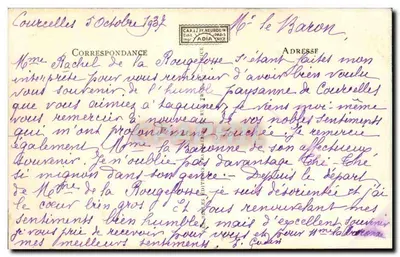 Courcelles 5 Octobre 1937
Mr le Baron
CORRESPONDANCE
ADRESSE
Mme Rachel de la Rougefosse s'étant faites mon
interprète pour vous remercier d'avoir bien voulu
vous souvenir de l'humble paysanne de Courcelles
que vous aimiez à taquiner je viens moi-même
vous remercier à nouveau de vos nobles sentiments
qui m'ont profondément touchée. Je remercie
également Mme la Baronne de son affectueux
souvenir. Je n'oublie pas davantage Thé-Thé
si mignon dans son genre. Depuis le départ
de Mme de la Rougefosse je suis désorientée et j'ai
le cœur bien gros. Et vous renouvelant mes
sentiments bien humbles mais d'excellent souvenir
je vous prie de recevoir pour vous et pour Mme la Baronne
mes meilleurs sentiments.